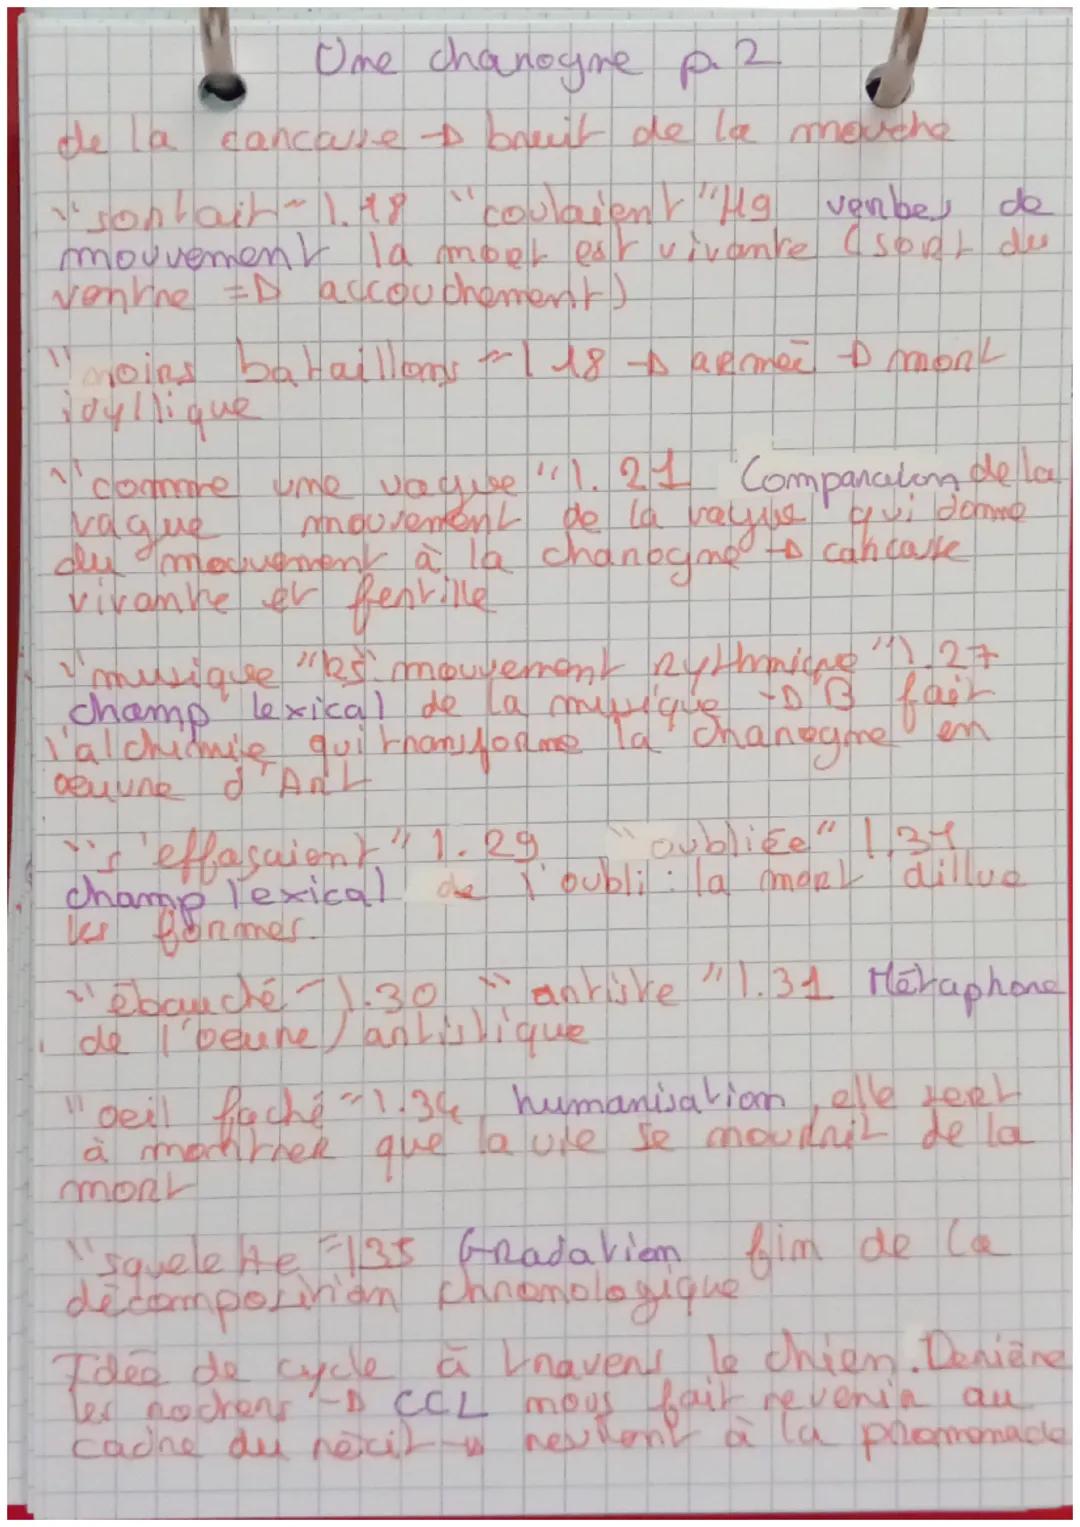 Une charogne p.2
de la carcasse → bruit de la mouche
"sortait" l.18 "coulaient" l19 verbes de
mouvement la mort est vivante (sort du
ventre => accouchement)
"noirs bataillons" l 18 → armée → mort
idyllique
"comme une vague" l. 21 Comparaison de la
vague mouvement de la vague qui donne
du mouvement à la charogne → carcasse
vivante et fertille
"musique" l25 "mouvement rythmique" l.27
champ lexical de la musique → B fait
l'alchimie qui transforme la charogne en
oeuvre d'Art
"s'effaçaient" l.29 "oubliée" l.31
champ lexical de l'oubli : la mort dillue
les formes.
"ébauche" l.30 "artiste" l.31 Métaphore
de l'oeuvre artistique
"oeil faché" l.34 humanisation, elle sert
à montrer que la vie se nourrit de la
mort
"squelette" l35 Gradation fin de la
décomposition chronologique
Idée de cycle à travers le chien. Derière
les rochers → CCL nous fait revenir au
cadre du récit → restent à la promenade